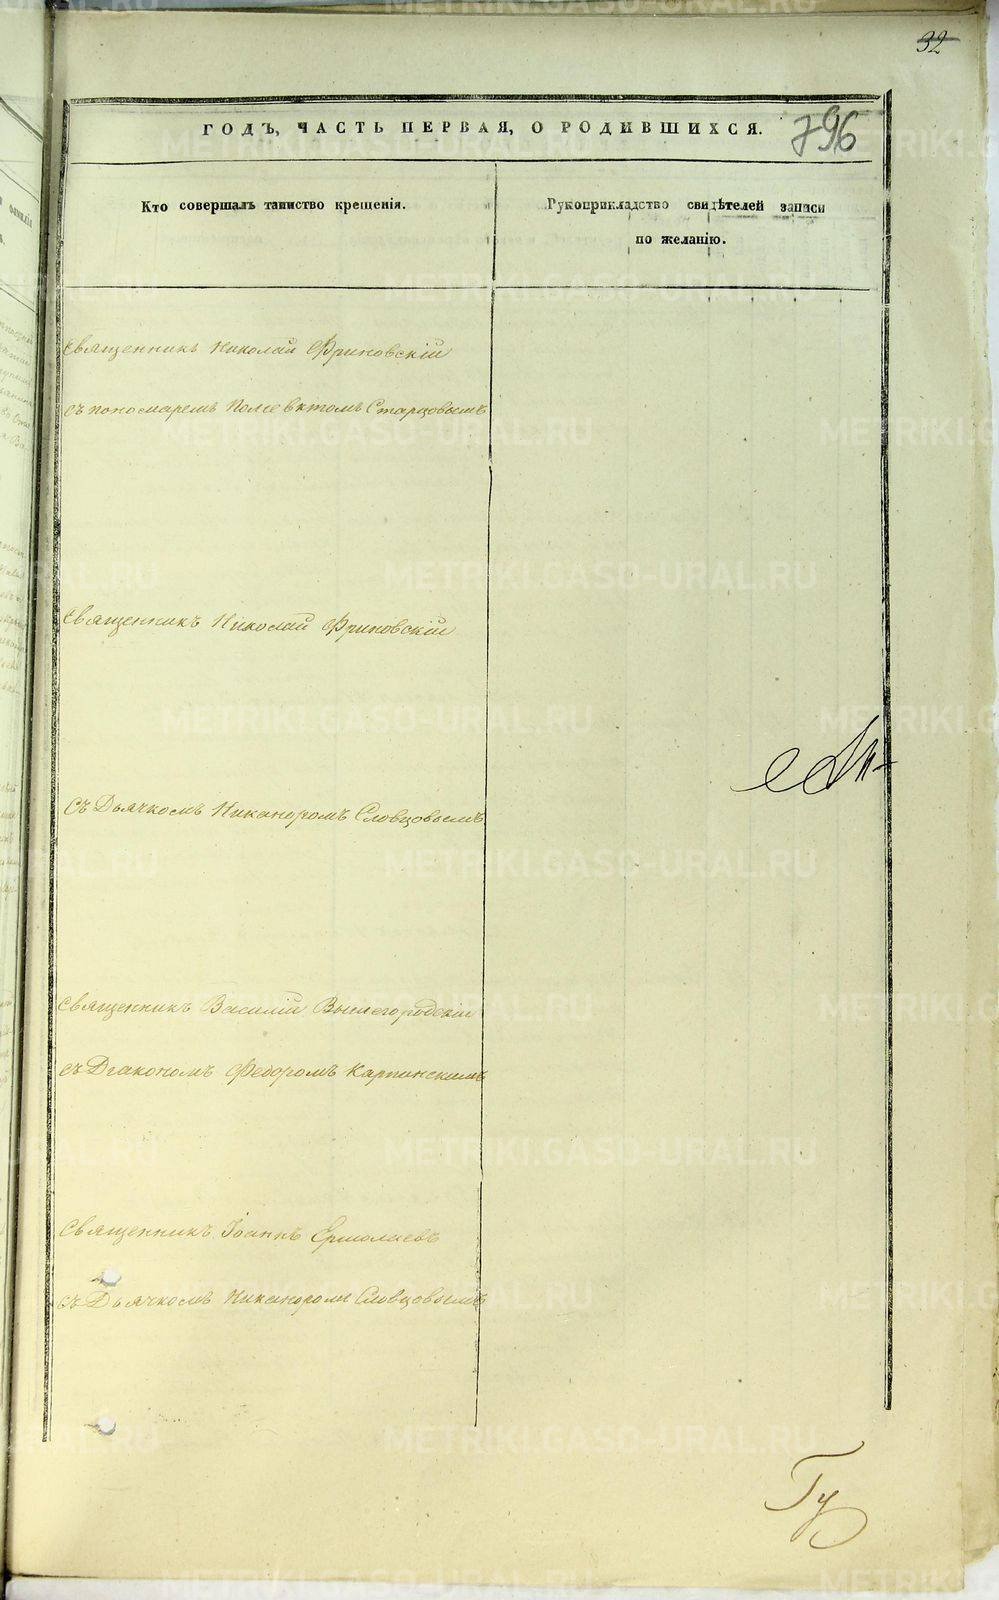 32
ГОДЪ, ЧАСТЬ ПЕРВАЯ, О РОДИВШИХСЯ.
796
Кто совершалъ таинство крещенія.
Рукоприкладство свидѣтелей записи
по желанію.
Священникъ Николай Фриновскій
съ пономаремъ Полеевктомъ Старцовымъ
Священникъ Николай Фриновскій
съ Дьячкомъ Никаноромъ Словцовымъ
Священникъ Василій Вышегородскій
съ Діакономъ Федоромъ Карпинскимъ
Священникъ Іоаннъ Ермолаевъ
съ Дьячкомъ Никаноромъ Словцовымъ
Гу
METRIKI.GASO-URAL.RU